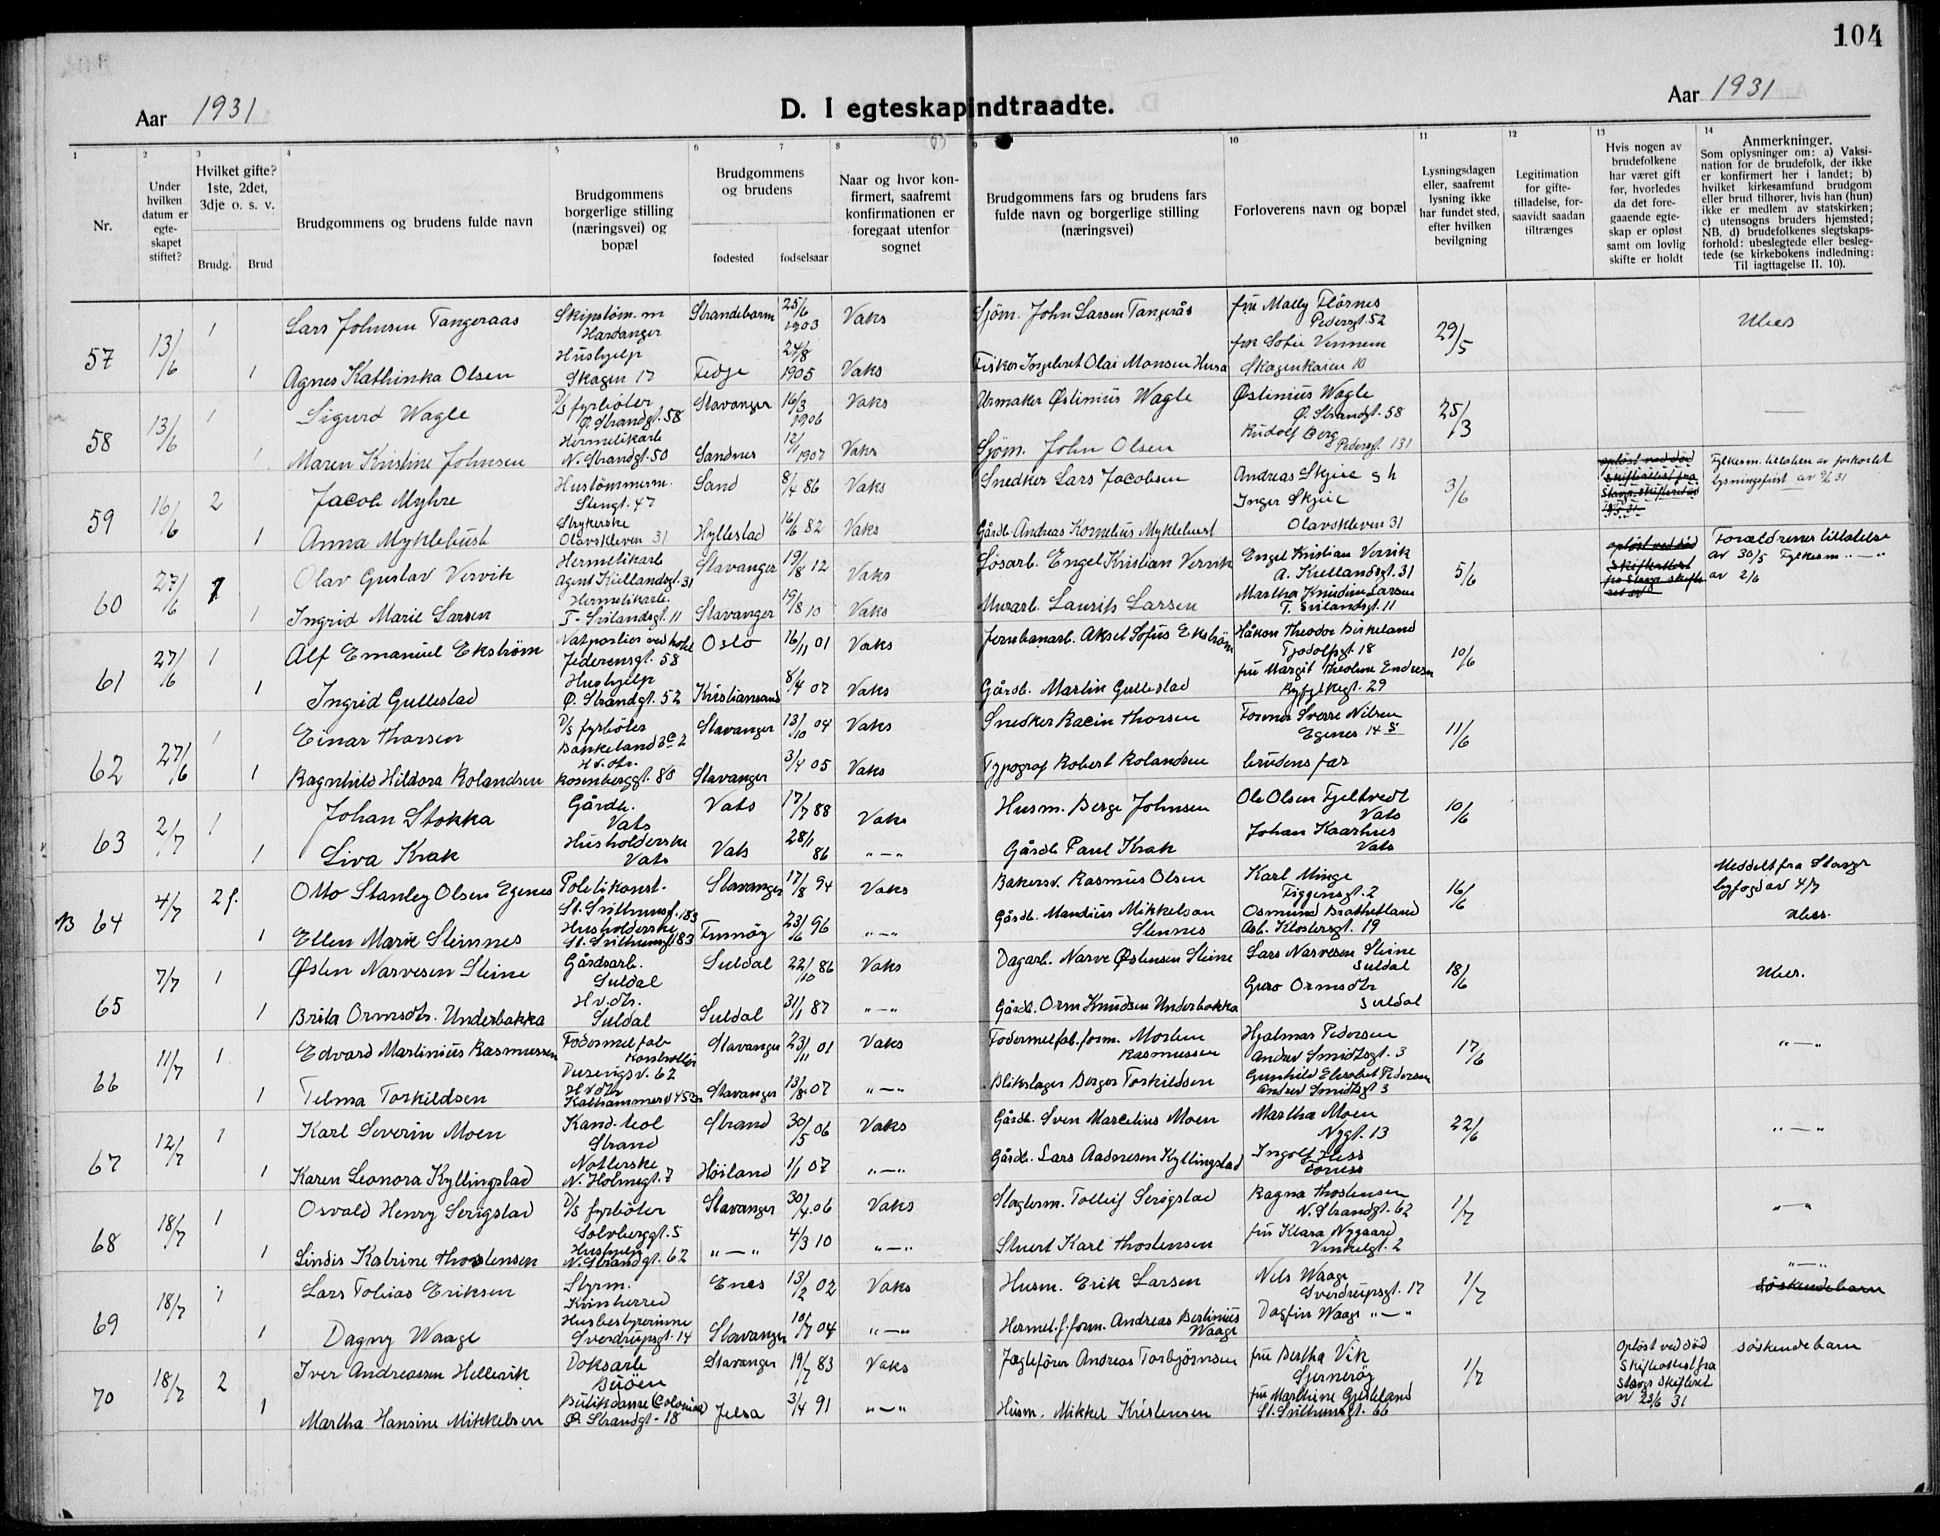 104
Aar 1931
D. I egteskapindtraadte.
Aar 1931
1
2
3
4
5
6
7
8
9
10
11
12
13
14
Nr.
Under
hvilken
datum er
egte-
skapet
stiftet?
Hvilket gifte?
1ste, 2det,
3dje o. s. v.
Brudg.
Brud
Brudgommens og brudens fulde navn
Brudgommens
borgerlige stilling
(næringsvei) og
bopæl
Brudgommens
og brudens
fødested
fødselsaar
Naar og hvor kon-
firmert, saafremt
konfirmationen er
foregaat utenfor
sognet
Brudgommens fars og brudens fars
fulde navn og borgerlige stilling
(næringsvei)
Forloverens navn og bopæl
Lysningsdagen
eller, saafremt
lysning ikke
har fundet sted,
efter hvilken
bevilgning
Legitimation
for gifte-
tilladelse, for-
saavidt saadan
tiltrænges
Hvis nogen av
brudefolkene
har været gift
før, hvorledes
da det fore-
gaaende egte-
skap er opløst
samt om lovlig
skifte er holdt
Anmerkninger.
Som oplysninger om: a) Vaksi-
nation for de brudefolk, der ikke
er konfirmert her i landet; b)
hvilket kirkesamfund brudgom
eller brud tilhører, hvis han (hun)
ikke er medlem av statskirken;
c) utensogns bruders hjemsted;
NB. d) brudefolkenes slegtskaps-
forhold: ubeslegtede eller besleg-
tede (se kirkebokens indledning:
Til iagttagelse II. 10).
57 13/6 1 Lars Johnsen Tangeraas Skipstøm. m Strandebarm 25/6 1903 Vaks Sjøm. John Larsen Tangerås fru Mally Flörnes 29/5 Ubes
Hardanger Pedersgt. 52
Hushjelp 24/8 frk Sofie Vinnem
1 Agnes Kathinka Olsen Skagen 17 Fedje 1905 Vaks Fisker Ingebret Olai Monsen Husa Skagenkaien 10
58 13/6 1 Sigurd Wagle D/S fyrbøter Stavanger 16/3 1906 Vaks Urmaker Østinius Wagle Østinius Wagle 25/3
Ø. Strandgt. 58 Ø. Strandgt. 58
Hermetikarb 12/1 Rudolf Berg
1 Maren Kristine Johnsen N. Strandgt. 50 Sandnes 1907 Vaks Sjøm. John Olsen Pedersgt. 131
59 16/6 2 Jacob Myhre Hustømmerm. Sand 8/4 86 Vaks Snedker Lars Jacobsen Andreas Skjeie 3/6 opløst ved død
Stengt. 47 Inger Skjeie Skifteattest fra
Strykerske
1 Anna Myklebust Olavskleven 31 Hyllestad 16/6 82 Vaks Gårdb. Andreas Kornelius Myklebust Olavskleven 31
60 27/6 1 Olav Gustav Vervik Hermetikarb Stavanger 19/8 12 Vaks Løsarb. Engel Kristian Vervik Engel Kristian Vervik 5/6 opløst ved død Forældrenes tillatelse
Agent Kiellandsgt. 31 A. Kiellandsgt. 31 Skifteattest av 30/5 Fylkesm. "—"
Hermetikarb. Martha Knudine Larsen av 2/6
1 Ingrid Marie Larsen Stavanger 19/8 10 Vaks Murarb. Laurits Larsen
61 27/6 1 Alf Emanuel Ekstrøm Natportier ved hotel Oslo 16/11 01 Vaks Jernbanarb. Aksel Sofus Ekstrøm Håkon Theodor Birkeland 10/6
Jederensgt. 58 Tjodolfsgt 18
Hushjelp fru Margit Theoline Endresen
1 Ingrid Gullestad Ø. Strandgt. 52 Kristiansand 8/4 07 Vaks Gårdb. Martin Gullestad Ryfylkegt. 29
62 27/6 1 Einar Thorsen D/S fyrbøter Stavanger 13/10 04 Vaks Snedker Racin Thorsen Formen Sverre Nilsen 11/6
Egenes 14
H v. dtr.
1 Ragnhild Hildora Rolandsen Rosenberggt. 80 Stavanger 3/4 05 Vaks Typograf Robert Rolandsen brudens far
63 2/7 1 Johan Stokka Gårdb. Vats 17/7 88 Vaks Husm. Berge Johnsen Ole Olsen Fjeltvedt 10/6
Vats Vats
Husholderske Johan Kaarhus
1 Siva Krak Vats Vats 28/1 86 "—" Gårdb Paul Krak Vats
B 64 4/7 2 f. Otto Stanley Olsen Egenes Politikonst. Stavanger 17/8 94 Vaks Bakersv. Rasmus Olsen Karl Minge 16/6 Meddelt fra Stavgr
St. Svithunsg. 183 Tiggensgt. 2 byfogd av 4/7
Husholderske Gårdb. Mandius Mikkelson Osmund Brathetland Ubes.
1 Ellen Marie Steinnes St. Svithunsg 183 Finnøy 23/6 96 "—" Stennes Asb. Klostersgt. 19
65 7/7 1 Østen Narvesen Steine Gårdsarb. Suldal 22/10 86 Vaks Dagarb. Narve Østensen Steine Lars Narvesen Steine 18/6 Ubes.
Suldal Suldal
H v. dtr. Guro Ormsdtr
1 Brita Ormsdtr. Underbakka Suldal Suldal 31/1 87 "—" Gårdb. Orm Knudsen Underbakka Suldal
66 11/7 1 Edvard Martinius Rasmussen Fodermel fab Stavanger 23/11 01 Vaks Fodermelfab. form. Morten Hjalmar Pedersen 17/6 "—"
Kontrollør Rasmussen Andrew Smidtsgt. 3
Dusevigsv. 62 Gunhild Elisabet Pedersen
1 Telma Torkildsen H v dtr Stavanger 13/8 07 "—" Blikslager Berger Torkildsen Andrew Smidtsgt 3
67 12/7 1 Karl Severin Moen Kand. teol Strand 30/5 06 Vaks Gårdb. Sven Marselius Moen Martha Moen 22/6 "—"
Strand Nygt. 13
Notterske Ingolf Hess
1 Karen Leonora Kyllingstad N. Holmegt. 7 Høiland 1/1 07 "—" Gårdb. Lars Aadnesen Kyllingstad
68 18/7 1 Osvald Henry Serigstad D/S fyrbøter Stavanger 30/4 06 Vaks Slagterm. Tolleif Serigstad Ragna Thostensen 1/7 "—"
Solvberggt. 5 N. Strandgt. 62
Hushjelp fru Klara Nygaard
1 Lindis Katrine Thostensen N. Strandgt. 62 "—" 4/3 10 "—" Stuert Karl Thostensen Vinkelgt. 2
69 18/7 1 Lars Tobias Eriksen Styrm. Enes 13/2 02 Vaks Husm. Erik Larsen Nils Waage 1/7 "—"
Kvinherred Sverdrupsgt. 17 søskendebarn
Husbestyrerinne
1 Dagny Waage Sverdrupsgt. 14 Stavanger 10/7 04 "—" Hermet. f. form. Andreas Bertinius Waage Dagfin Waage "—"
70 18/7 2 Iver Andreassen Hellevik Doksarb Stavanger 19/7 83 Vaks Jægtefører Andreas Torbjørnsen fru Bertha Vik 1/7 Opløst ved død søskendebarn
Buöen Sjernerøy Skifteattest fra
Butikdame (Colonial) fru Marthine Gjeteland Stavgr Skifteret
1 Martha Hansine Mikkelsen Ø. Strandgt. 18 Jelsa 3/4 91 "—" Husm. Mikkel Kristensen St. Svithunsgt. 66 av 23/6 31